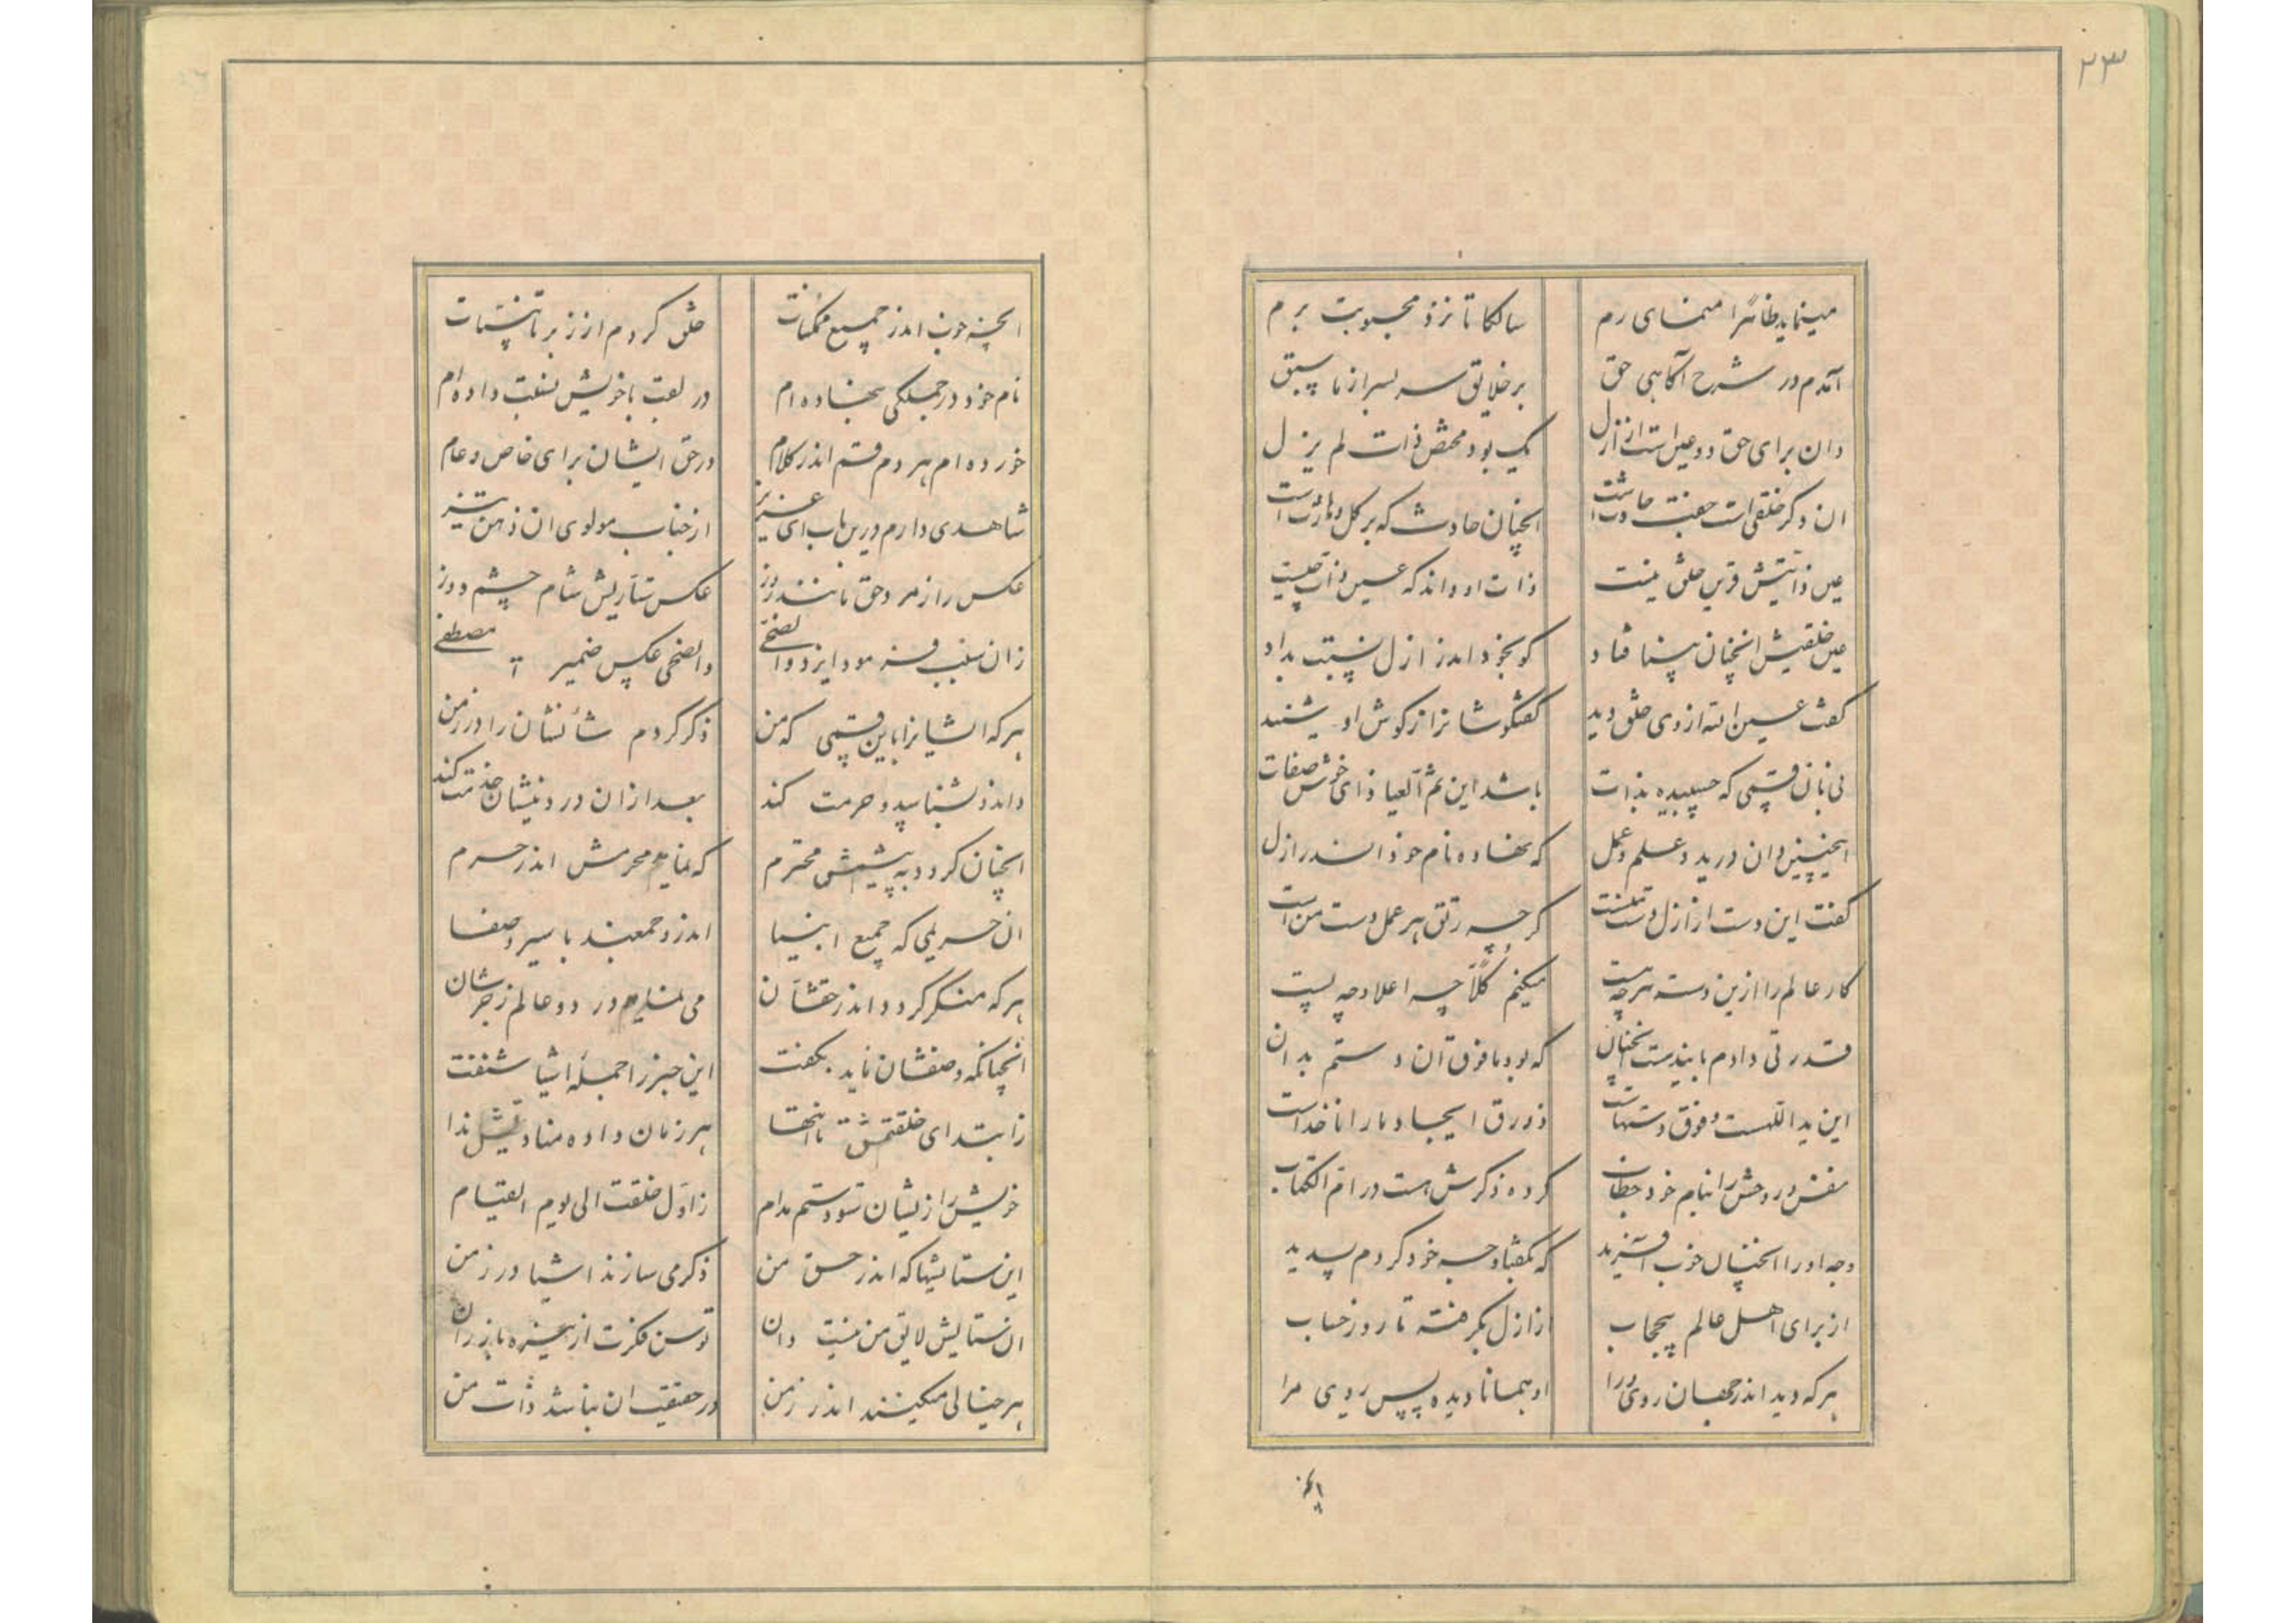 ۲۳
مینماید ظاهرا منمای رم
سالکا تا نزد محبوبت برم
آمدم در شرح آکاهی حق
بر خلایق سر بسر از ما سبق
دان برای حق دو عین است از ازل
یک بود محض ذات لم یزل
ان دکر خلقی است
انچنان حادث که بر کل
عین ذاتیش قرین خلق نیست
ذات او داند که عین ذات چیست
عین خلقیش انچنان بینا فتاد
کو بخود اندر ازل نسبت بداد
کفت عین الله از وی خلق دید
کفتکوشانرا ز کوش او شنید
نی بان قسمی که چسبیده بذات
باشد این ثم العیاذ ای خوش صفات
اینچنین دان در ید و علم و عمل
که نهاده نام خود اندر ازل
کفت این دست از ازل دست منست
کرچه رتق هر عمل دست من است
کار عالم را ازین دسته هرچه هست
میکنم کلا چه اعلا و چه پست
قدرتی دادم باین دست انچنان
که بود مافوق آن دستم بدان
این ید اللهست و فوق دستهاست
زورق ایجاد را ناخداست
نفس و روحش را بنام خود خطاب
کرده ذکرش هست در ام الکتاب
وجه او را انچنان خوب آفرید
که بکفتا وجه خود کردم پدید
از برای اهل عالم بیحجاب
از ازل بکرفته تا روز حساب
هر که دید اندر جهان روی ورا
او همانا دیده پس روی مرا
انچنه خوب اندر جمیع ممکنات
خلق کردم از زبر تا تحتیات
نام خود در جملکی بنهاده ام
در لعب با خویش نسبت داده ام
خورده ام هر دم قسم اندر کلام
در حق ایشان برای خاص و عام
شاهدی دارم درین باب ای عزیز
از جناب مولوی ان ذهن تیز
عکس راز مرد حق
عکس ستاریش شام چشم دوز
زان سبب فرمود ایزد والضحی
والضحی عکس ضمیر مصطفی
هر که ایشانرا باین قسمی که من
ذکر کردم شانشان را در زمن
داند و بشناسد و حرمت کند
بعد ازان در دینشان خدمت کند
انچنان کردد به پیشش محترم
که نمایم محرمش اندر حرم
ان حریمی که جمیع انبیا
اندرو جمعند با سیر و صفا
هر که منکر کردد اندر حقشان
می نمایم در دو عالم زجرشان
انچنانکه وصفشان ناید بکفت
این خبر را جمله اشیا شنفت
ز ابتدای خلقتش تا انتها
هر زمان داده منادیش ندا
خویش را زیشان ستودستم مدام
ز اول خلقت الی یوم القیام
این ستایشها که اندر حق من
ذکر می سازند اشیا در زمن
ان ستایش لایق من نیست دان
توسن فکرت از
هر خیالی میکنند اندر زمن
در حقیقت ان نباشد ذات من